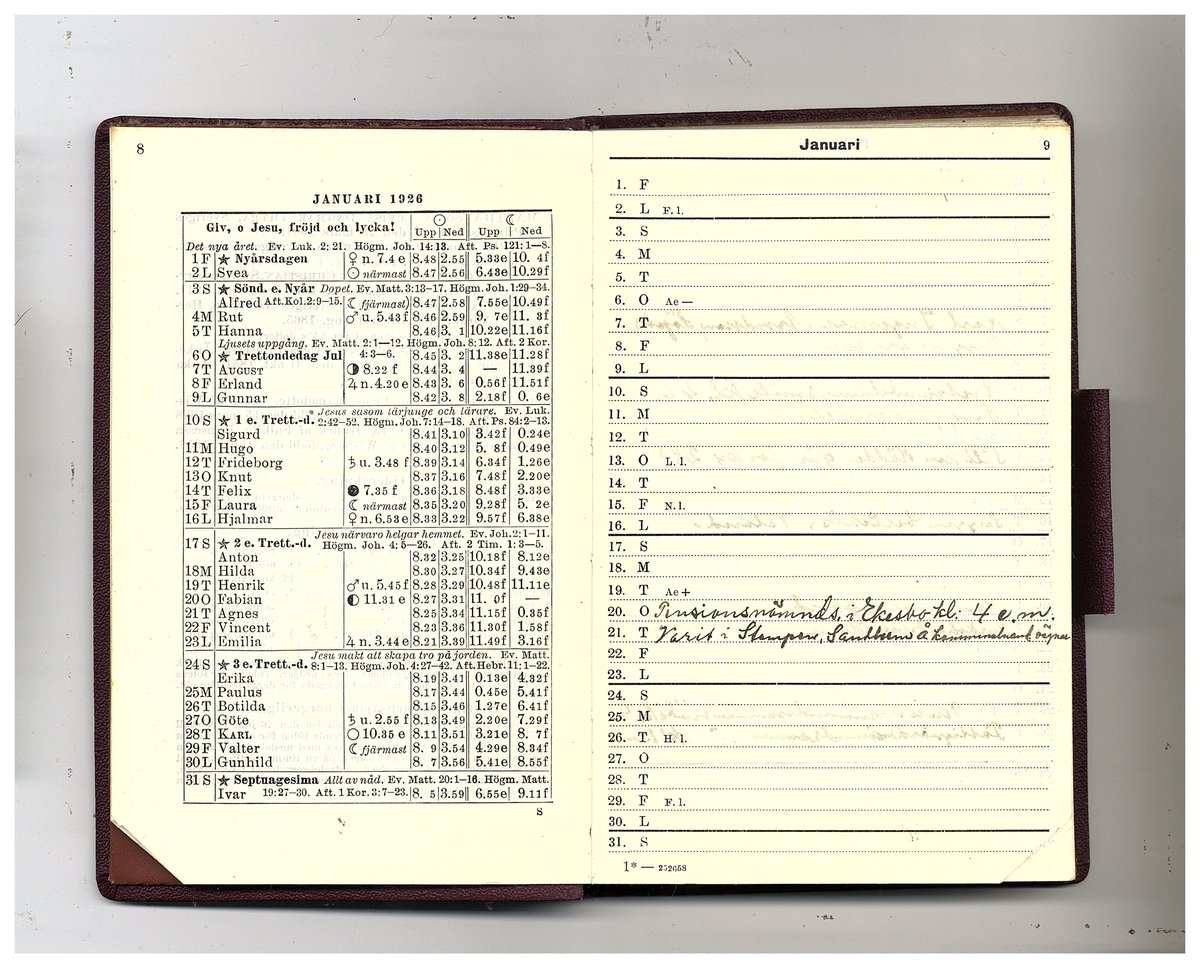 8
JANUARI 1926
Giv, o Jesu, fröjd och lycka! ☉ ☾
Upp Ned Upp Ned
Det nya året. Ev. Luk. 2: 21. Högm. Joh. 14: 13. Aft. Ps. 121: 1—8.
1 F ★ Nyårsdagen ♀ n. 7.4 e 8.48 2.55 5.33e 10. 4f
2 L Svea ☉ närmast 8.47 2.56 6.43e 10.29f
3 S ★ Sönd. e. Nyår Dopet. Ev. Matt. 3: 13-17. Högm. Joh. 1: 29-34.
Alfred Aft. Kol. 2: 9-15. ☾ fjärmast) 8.47 2.58 7.55e 10.49f
4 M Rut ♂ u. 5.43 f 8.46 2.59 9. 7e 11. 3f
5 T Hanna 8.46 3. 1 10.22e 11.16f
Ljusets uppgång. Ev. Matt. 2: 1—12. Högm. Joh. 8: 12. Aft. 2 Kor.
6 O ★ Trettondedag Jul 4: 3—6. 8.45 3. 2 11.38e 11.28f
7 T AUGUST ◑ 8.22 f 8.44 3. 4 — 11.39f
8 F Erland ♃ n. 4.20 e 8.43 3. 6 0.56f 11.51f
9 L Gunnar 8.42 3. 8 2.18f 0. 6e
Jesus såsom lärjunge och lärare. Ev. Luk.
10 S ★ 1 e. Trett.-d. 2: 42–52. Högm. Joh. 7: 14–18. Aft. Ps. 84: 2–13.
Sigurd 8.41 3.10 3.42f 0.24e
11 M Hugo 8.40 3.12 5. 8f 0.49e
12 T Frideborg ♄ u. 3.48 f 8.39 3.14 6.34f 1.26e
13 O Knut 8.37 3.16 7.48f 2.20e
14 T Felix ● 7.35 f 8.36 3.18 8.48f 3.33e
15 F Laura ☾ närmast 8.35 3.20 9.28f 5. 2e
16 L Hjalmar ♀ n. 6.53 e 8.33 3.22 9.57f 6.38e
Jesu närvaro helgar hemmet. Ev. Joh. 2: 1–11.
17 S ★ 2 e. Trett.-d. Högm. Joh. 4: 5—26. Aft. 2 Tim. 1: 3—5.
Anton 8.32 3.25 10.18f 8.12e
18 M Hilda 8.30 3.27 10.34f 9.43e
19 T Henrik ♂ u. 5.45 f 8.28 3.29 10.48f 11.11e
20 O Fabian ◐ 11.31 e 8.27 3.31 11. 0f —
21 T Agnes 8.25 3.34 11.15f 0.35f
22 F Vincent 8.23 3.36 11.30f 1.58f
23 L Emilia ♃ n. 3.44 e 8.21 3.39 11.49f 3.16f
Jesu makt att skapa tro på jorden. Ev. Matt.
24 S ★ 3 e. Trett.-d. 8: 1–13. Högm. Joh. 4: 27–42. Aft. Hebr. 11: 1–22.
Erika 8.19 3.41 0.13e 4.32f
25 M Paulus 8.17 3.44 0.45e 5.41f
26 T Botilda 8.15 3.46 1.27e 6.41f
27 O Göte ♄ u. 2.55 f 8.13 3.49 2.20e 7.29f
28 T KARL ○ 10.35 e 8.11 3.51 3.21e 8. 7f
29 F Valter ☾ fjärmast 8. 9 3.54 4.29e 8.34f
30 L Gunhild 8. 7 3.56 5.41e 8.55f
31 S ★ Septuagesima Allt av nåd. Ev. Matt. 20: 1–16. Högm. Matt.
Ivar 19: 27–30. Aft. 1 Kor. 3: 7–23. 8. 5 3.59 6.55e 9.11f
S
Januari 9
1. F
2. L F. l.
3. S
4. M
5. T
6. O Ae —
7. T
8. F
9. L
10. S
11. M
12. T
13. O L. l.
14. T
15. F N. l.
16. L
17. S
18. M
19. T Ae +
20. O Pensionsnämnds. i Ekesbo kl: 4 e. m.
21. T Varit i Stempen, Sandhem å kommunalnämd
22. F
23. L
24. S
25. M
26. T H. l.
27. O
28. T
29. F F. l.
30. L
31. S
1* — 252658